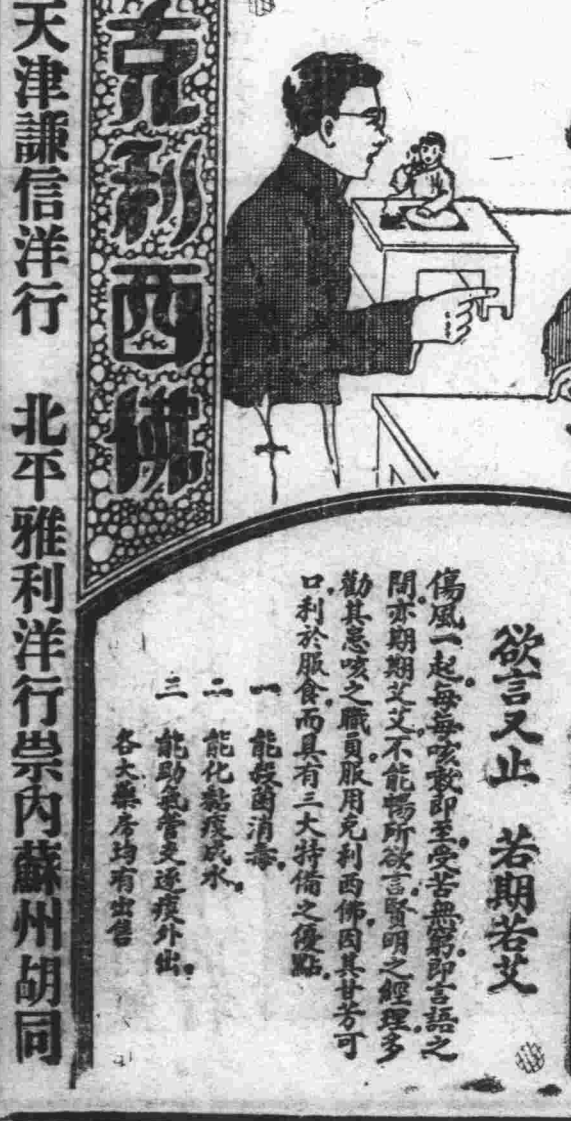 欲言又止　若期若艾
傷風一起。每每咳嗽即至。受苦無窮。即言語之
間。亦期期艾艾。不能暢所欲言。賢明之經理。多
勸其患咳之職員。服用克利西佛。因其甘芳可
口。利於服食。而具有三大特備之優點。
一　能殺菌消毒。
二　能化黏痰成水。
三　能助氣管支逐痰外出。
各大藥房均有出售
克利西佛
天津謙信洋行　北平雅利洋行崇內蘇州胡同